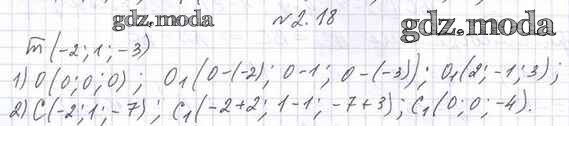 gdz.moda №2.18 gdz.moda
m̅(-2; 1; -3)
1) O(0; 0; 0); O₁(0-(-2); 0-1; 0-(-3)); O₁(2; -1; 3);
2) C(-2; 1; -7); C₁(-2+2; 1-1; -7+3); C₁(0; 0; -4).